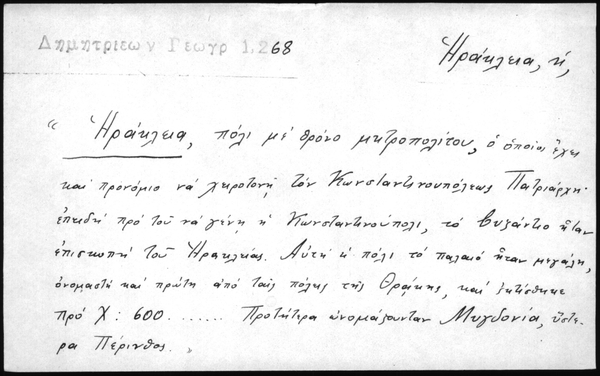 Δημητριεων Γεωγρ 1.268
Ἡράκλεια, ἡ,
“ Ἡράκλεια, πόλι μέ θρόνο μητροπολίτου, ὁ ὁποῖος ἔχει
καί προνόμιο νά χειροτονῇ τόν Κωνσταντινουπόλεως Πατριάρχη·
ἐπειδή πρό τοῦ νά γένῃ ἡ Κωνσταντινούπολι, τό Βυζάντιο ἦταν
ἐπισκοπή τοῦ Ἡρακλείας. Αὐτή ἡ πόλι τό παλαιό ἦταν μεγάλη,
ὀνομαστή καί πρώτη ἀπό ταῖς πόλης τῆς Θράκης, καί ἐκτίσθηκε
πρό Χ: 600 ....... Προτήτερα ὠνομάζουνταν Μυγδονία, ὕστε-
ρα Πέρινθος. ”